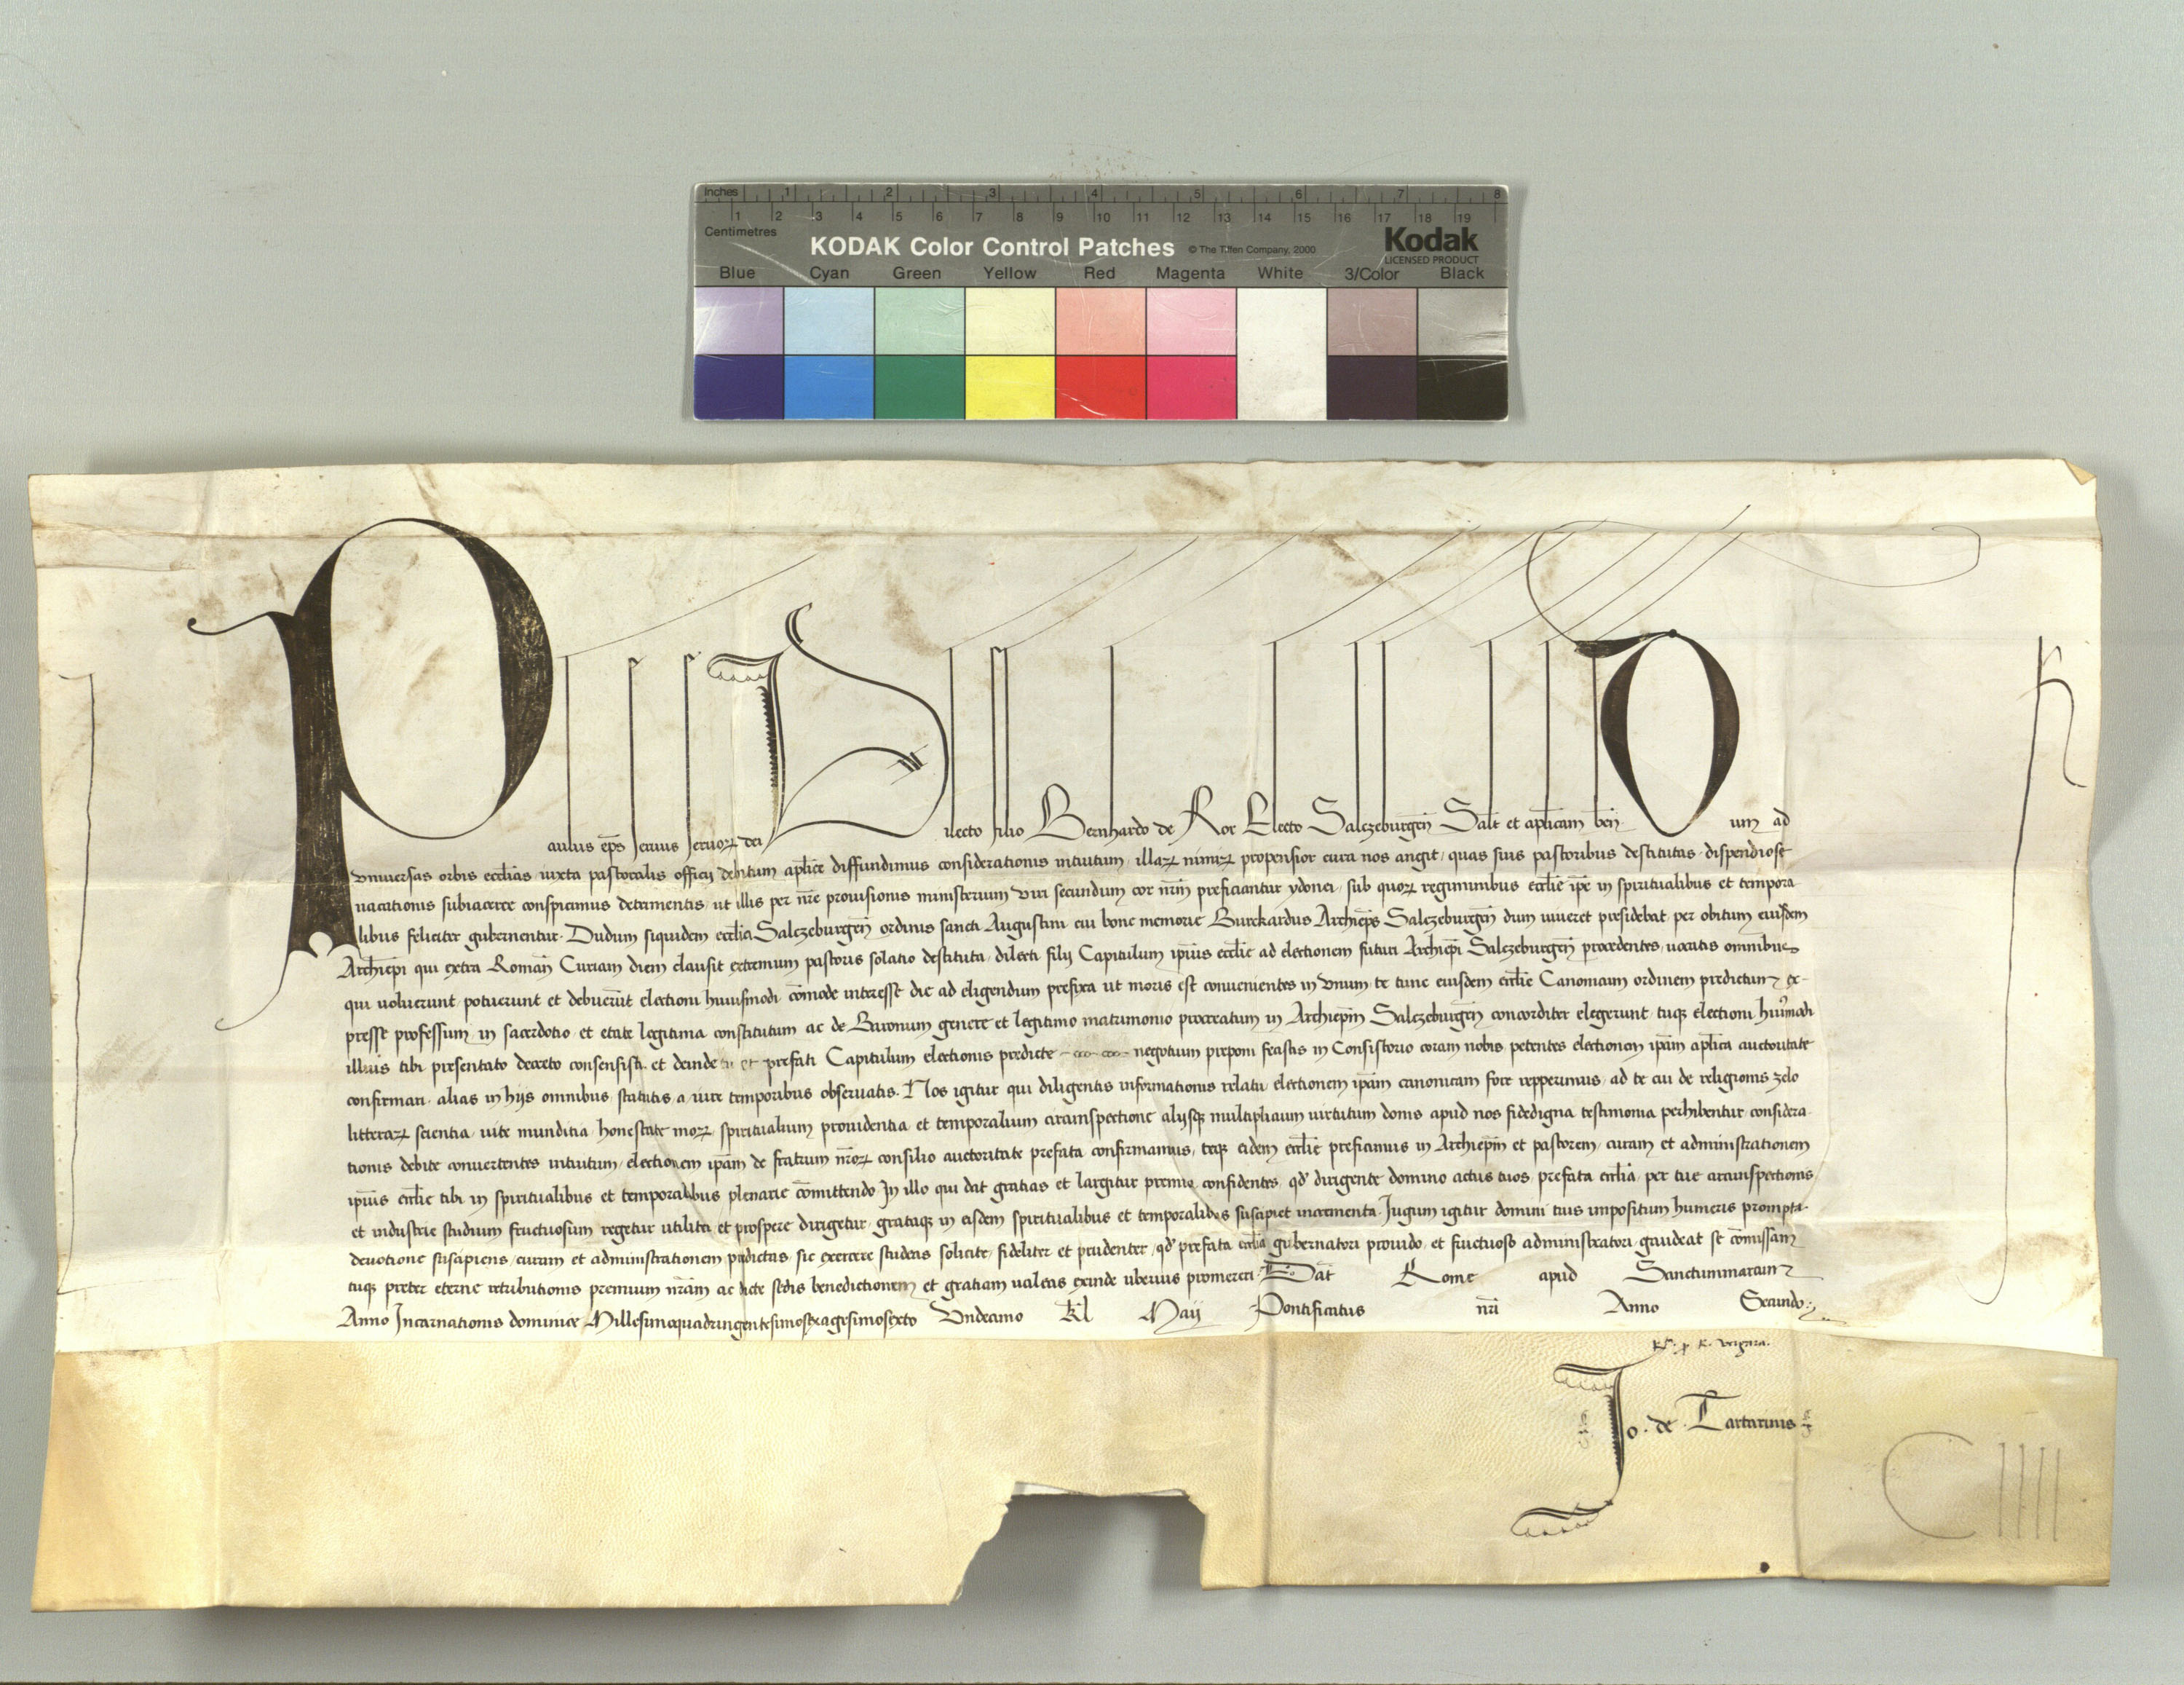 Inches 1 2 3 4 5 6 7 8
1 2 3 4 5 6 7 8 9 10 11 12 13 14 15 16 17 18 19
Centimetres
KODAK Color Control Patches © The Tiffen Company, 2000 Kodak
LICENSED PRODUCT
Blue Cyan Green Yellow Red Magenta White 3/Color Black
Paulus ep̄s seruus seruoꝝ dei Dilecto filio Bernhardo de Ror Electo Salczeburgeñ Salt̄ et ap̄licam ben̄ Dum ad
vniuersas orbis eccl̄ias iuxta pastoralis officij debitum ap̄lice diffundimus considerationis intuitum illaꝝ nimiꝝ propensior cura nos angit quas suis pastoribus destitutas dispendiose
uacationis subiacere conspicimus detrimentis ut illis per nr̄e prouisionis ministerium viri secundum cor nr̄m preficiantur ydonei sub quoꝝ regiminibus eccl̄ie ip̄e in spiritualibus et tempora
libus feliciter gubernentur Dudum siquidem eccl̄ia Salczeburgeñ ordinis sancti Augustini cui bone memorie Burckardus Archiep̄s Salczeburgeñ dum uiueret presidebat per obitum eiusdem
Archiep̄i qui extra Romañ Curiam diem clausit extremum pastoris solatio destituta dilecti filij Capitulum ip̄ius eccl̄ie ad electionem futuri Archiep̄i Salczeburgeñ procedentes uocatis omnibus
qui uoluerunt potuerunt et debuerūt electioni huiusmodi cōmode interesse die ad eligendum prefixa ut moris est conuenientes in vnum te tunc eiusdem eccl̄ie Canonicum ordinem predictum ex-
presse professum in sacerdotio et etate legitima constitutum ac de Baronum genere et legitimo matrimonio procreatum in Archiep̄m Salczeburgeñ concorditer elegerunt tuqꝫ electioni hui͂modi
illius tibi presentato decreto consensisti et deinde tu et prefati Capitulum electionis predicte negotium preponi fecistis in Consistorio coram nobis petentes electionem ip̄am ap̄lica auctoritate
confirmari alias in hijs omnibus statutis a iure temporibus obseruatis. Nos igitur qui diligentis informationis relatu electionem ip̄am canonicam fore repperimus ad te cui de religionis zelo
litteraꝝ scientia uite munditia honestate moꝝ spiritualium prouidentia et temporalium circunspectione alijsqꝫ multiplicium uirtutum donis apud nos fidedigna testimonia perhibentur considera
tionis debite conuertentes intuitum electionem ip̄am de fratrum nr̄oꝝ consilio auctoritate prefata confirmamus teqꝫ eidem eccl̄ie preficimus in Archiep̄m et pastorem curam et administrationem
ip̄ius eccl̄ie tibi in spiritualibus et temporalibus plenarie cōmittendo In illo qui dat gratias et largitur premia confidentes qd̄ dirigente domino actus tuos prefata eccl̄ia per tue circunspectionis
et industrie studium fructuosum regetur utiliter et prospere dirigetur grataqꝫ in eisdem spiritualibus et temporalibus suscipiet incrementa. Jugum igitur domini tuis impositum humeris prompta
deuotione suscipiens curam et administrationem predictas sic exercere studeas solicite fideliter et prudenter qd̄ prefata eccl̄ia gubernatori prouido et fructuoso administratori gaudeat se cōmissam
tuqꝫ preter eterne retributionis premium nr̄am ac dicte sedis benedictionem et gratiam ualeas exinde uberius promereri. Dat̄ Rome apud Sanctummarcum
Anno Incarnationis dominice Millesimoquadringentesimosexagesimosexto Vndecimo kl̄ Maij Pontificatus nr̄i Anno Secundo
Jo. de Tartarinis
C IIII